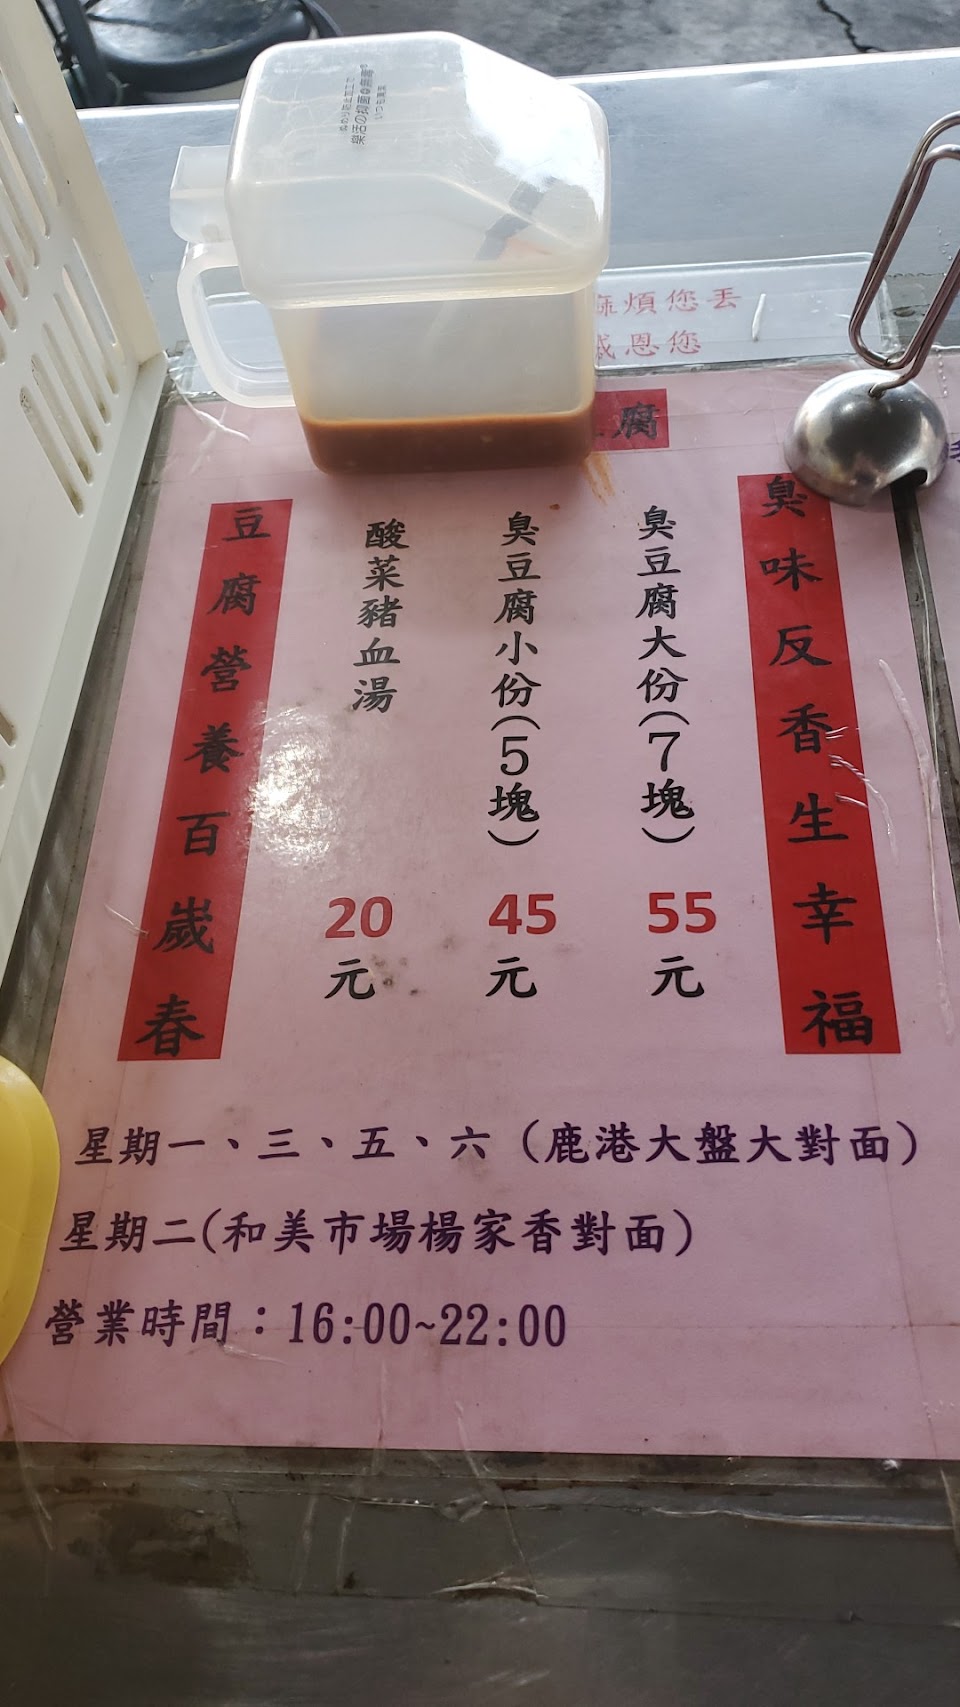 樂活の抑菌
麻煩您丟
感恩您
腐
臭味反香生幸福
臭豆腐大份(7塊) 55元
臭豆腐小份(5塊) 45元
酸菜豬血湯 20元
豆腐營養百歲春
星期一、三、五、六（鹿港大盤大對面）
星期二(和美市場楊家香對面)
營業時間：16:00~22:00